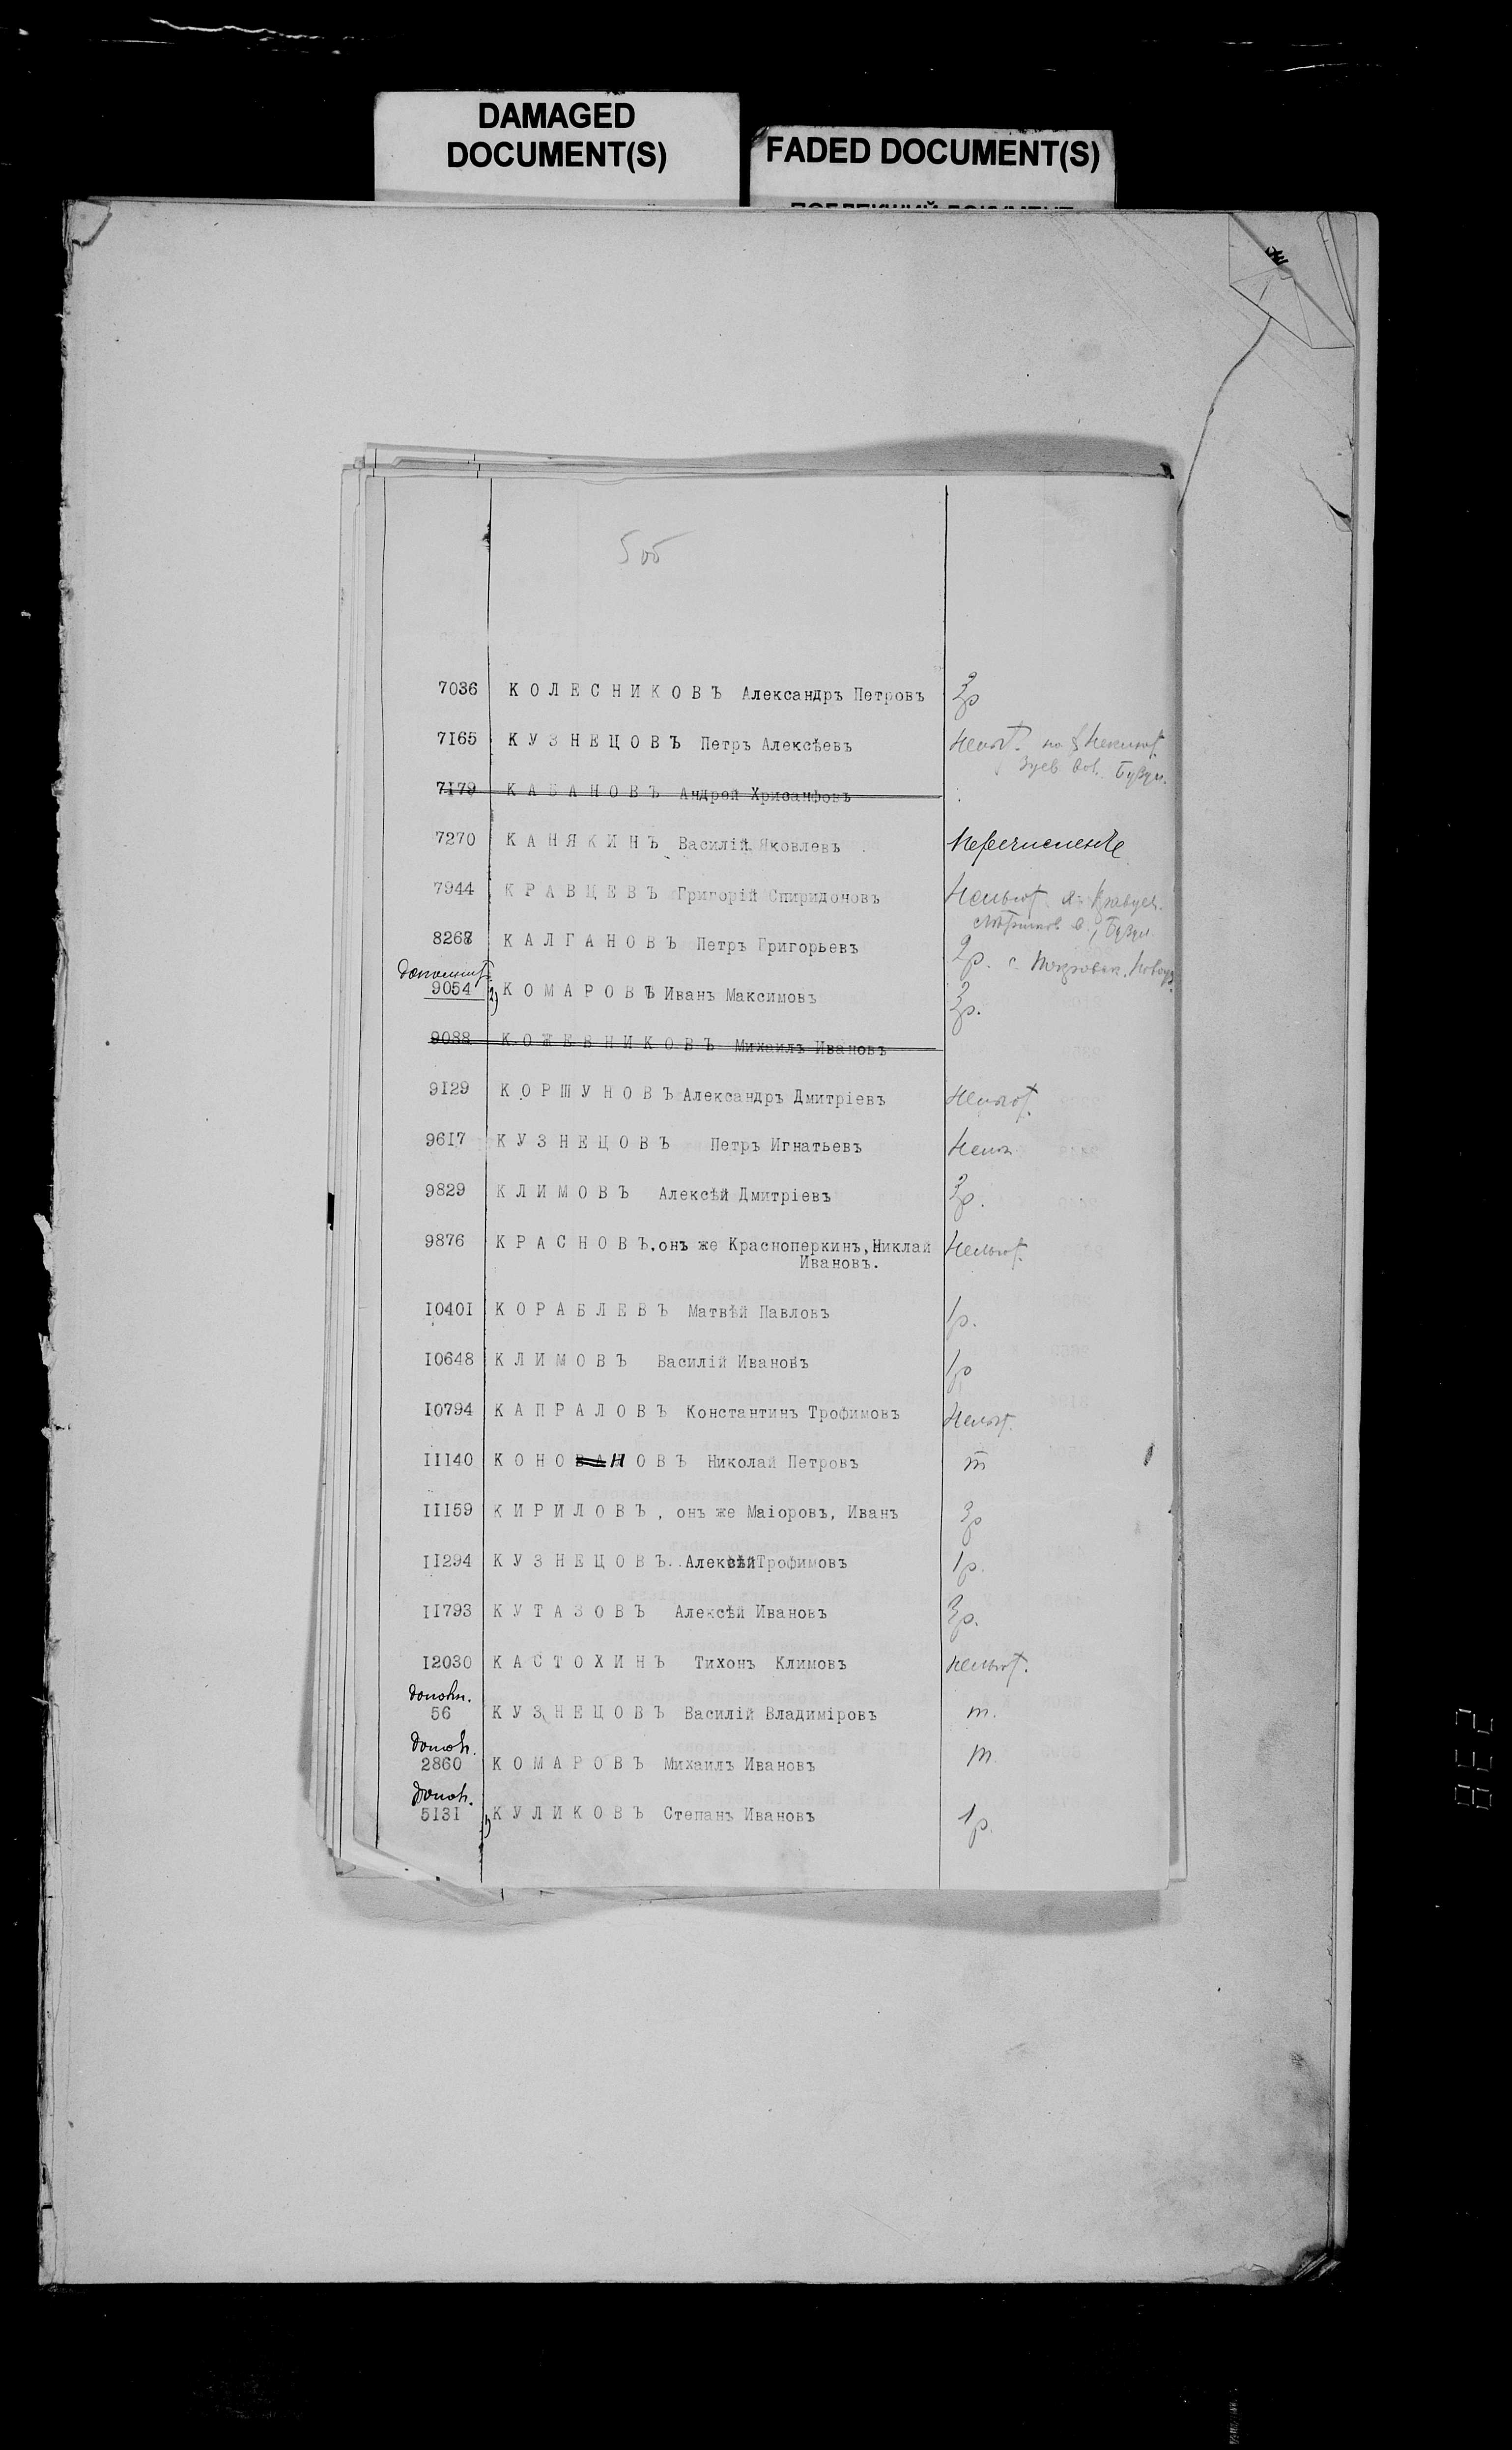 DAMAGED
DOCUMENT(S)
FADED DOCUMENT(S)
5 об
7036 КОЛЕСНИКОВЪ Александръ Петровъ 3р
7165 КУЗНЕЦОВЪ Петръ Алексѣевъ
7179 КАБАНОВЪ Андрей Хрисанфовъ
7270 КАНЯКИНЪ Василій Яковлевъ Перечисленіе
7944 КРАВЦЕВЪ Григорій Спиридоновъ
8268 КАЛГАНОВЪ Петръ Григорьевъ 2р. с.
9054 КОМАРОВЪ Иванъ Максимовъ 3р.
9088 КОЖЕВНИКОВЪ Михаилъ Ивановъ
9129 КОРШУНОВЪ Александръ Дмитріевъ
9617 КУЗНЕЦОВЪ Петръ Игнатьевъ
9829 КЛИМОВЪ Алексѣй Дмитріевъ 3р.
9876 КРАСНОВЪ, онъ же Красноперкинъ, Никлай
Ивановъ.
10401 КОРАБЛЕВЪ Матвѣй Павловъ 1р.
10648 КЛИМОВЪ Василій Ивановъ 1р
10794 КАПРАЛОВЪ Константинъ Трофимовъ
11140 КОНОВАНОВЪ Николай Петровъ т
11159 КИРИЛОВЪ, онъ же Маіоровъ, Иванъ 3р
11294 КУЗНЕЦОВЪ. Алексѣй Трофимовъ 1р.
11793 КУТАЗОВЪ Алексѣй Ивановъ 3р.
12030 КАСТОХИНЪ Тихонъ Климовъ
дополн.
56 КУЗНЕЦОВЪ Василій Владиміровъ т.
допол.
2860 КОМАРОВЪ Михаилъ Ивановъ т
допол.
5131 КУЛИКОВЪ Степанъ Ивановъ 1р.
238